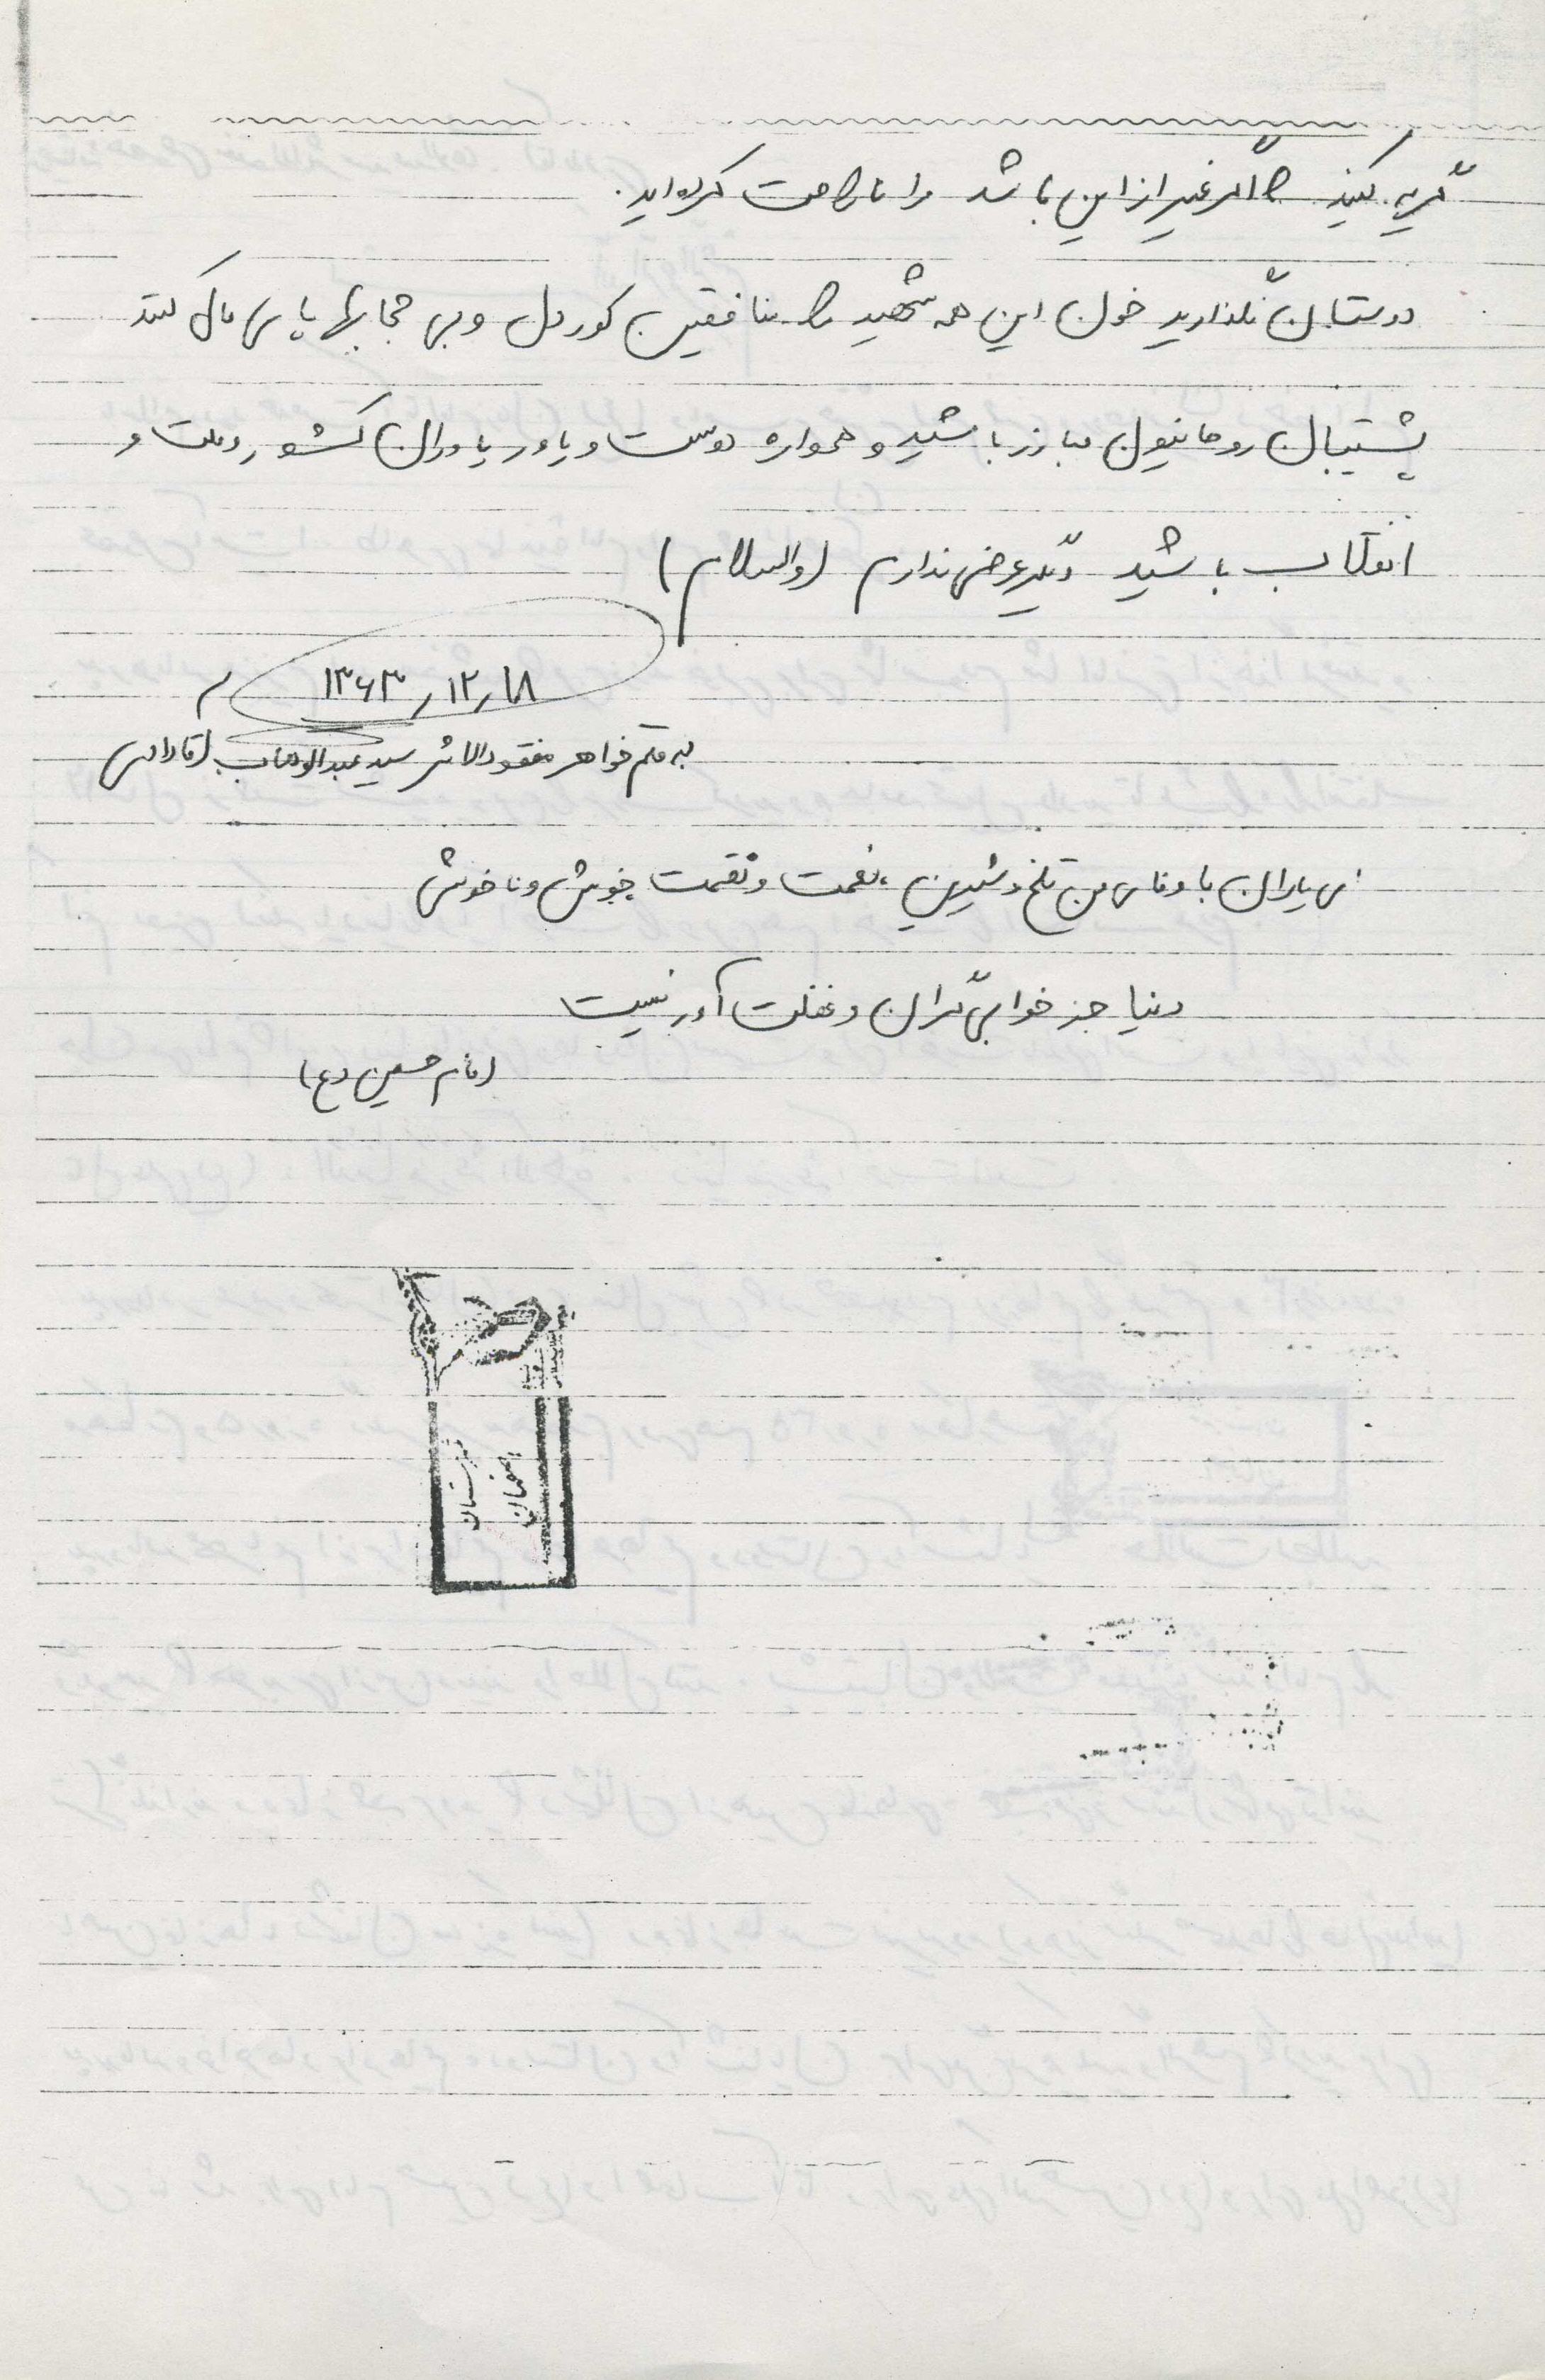 گریه کنید که اگر غیر از این باشد مرا ناراحت کرده اید.
دوستان نگذارید خون این همه شهید را منافقین کوردل و بی حجابها پایمال کنند
پشتیبان روحانیون مبارز باشید و همواره دوست و یاور یاوران کشور و ملت و
انقلاب باشید دیگر عرضی ندارم (والسلام)
۱۳۶۳٫۱۲٫۱۸
به قلم خواهر مفقودالاثر سید عبدالوهاب
ای یاران با وفای من تلخ و شیرین، نعمت و نقمت خوش و ناخوش
دنیا جز خوابی گران و غفلت آور نیست
امام حسین (ع)
اصفهان